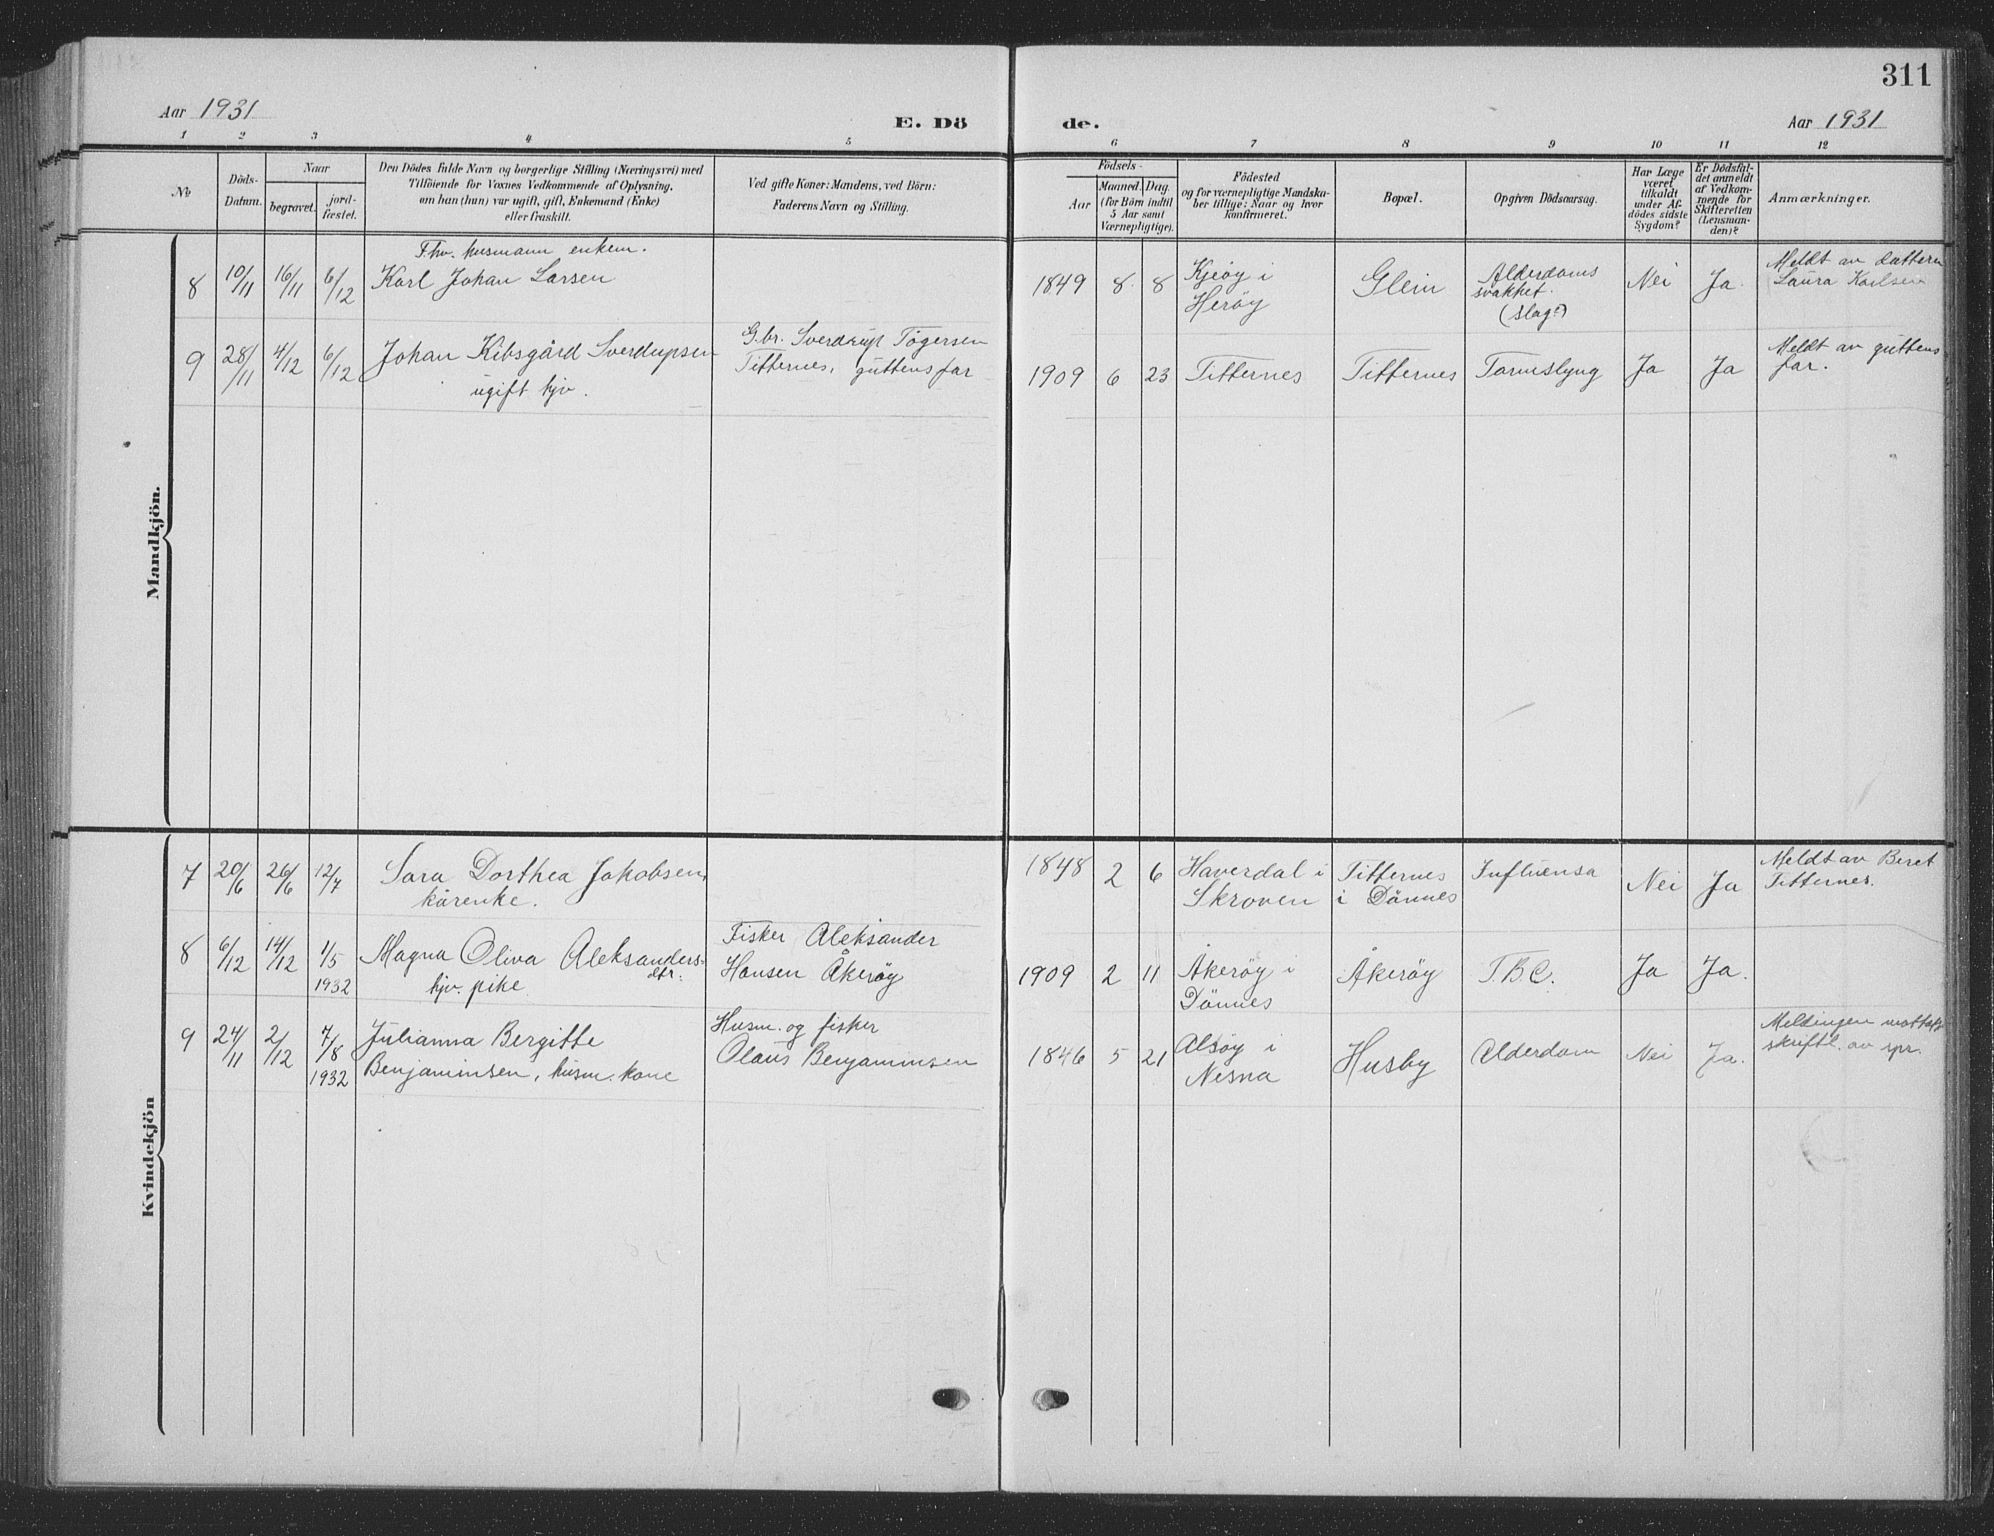 311
Aar 1931
E. Döde.
Aar 1931
1 2 3 4 5 6 7 8 9 10 11 12
No
Döds-
Datum.
Naar
begravet.
jord-
fæstet.
Den Dödes fulde Navn og borgerlige Stilling (Næringsvei) med
Tilföiende for Voxnes Vedkommende af Oplysning,
om han (hun) var ugift, gift, Enkemand (Enke)
eller fraskilt.
Ved gifte Koner: Mandens, ved Börn:
Faderens Navn og Stilling.
Födsels-
Aar
Maaned. Dag.
(for Börn indtil
5 Aar samt
Værnepligtige).
Födested
og for værnepligtige Mandska-
ber tillige: Naar og hvor
konfirmeret.
Bopæl.
Opgiven Dödsaarsag.
Har Læge
været
tilkaldt
under Af-
dödes sidste
Sygdom?
Er Dödsfal-
det anmeldt
af Vedkom-
mende for
Skifteretten
(Lensman-
den)?
Anmærkninger.
Mandkjön.
8 10/11 16/11 6/12
Fhv. husmann enkem.
Karl Johan Larsen
1849 8 8
Kjeöy i
Heröy
Glein
Alderdoms
svakhet.
(slag?)
Nei Ja.
Meldt av dattern
Laura Karlsen
9 28/11 4/12 6/12
Johan Kibsgård Sverdrupsen
ugift hjv.
G.br. Sverdrup Tögersen
Titternes, guttens far
1909 6 23
Titternes
Titternes
Tarmslyng
Ja Ja
Meldt av guttens
far.
Kvindekjön
7 20/6 26/6 12/7
Sara Dorthea Jakobsen,
kårenke.
1848 2 6
Haverdal i
Skroven
Titternes
i Dönnes
Influensa
Nei Ja
Meldt av Beret
Titternes.
8 6/12 14/12 1/5
1932
Magna Oliva Aleksanders-
dtr.
hjv. pike
Fisker Aleksander
Hansen Åkeröy
1909 2 11
Åkeröy i
Dönnes
Åkeröy
T.B.C.
Ja Ja.
9 24/11 2/12 7/8
1932
Julianna Bergitte
Benjaminsen, husm. kone
Husm. og fisker
Olaus Benjaminsen
1846 5 21
Alsöy i
Nesna
Husby
Alderdom
Nei Ja.
Meldingen mottatt
skriftl. av spr.